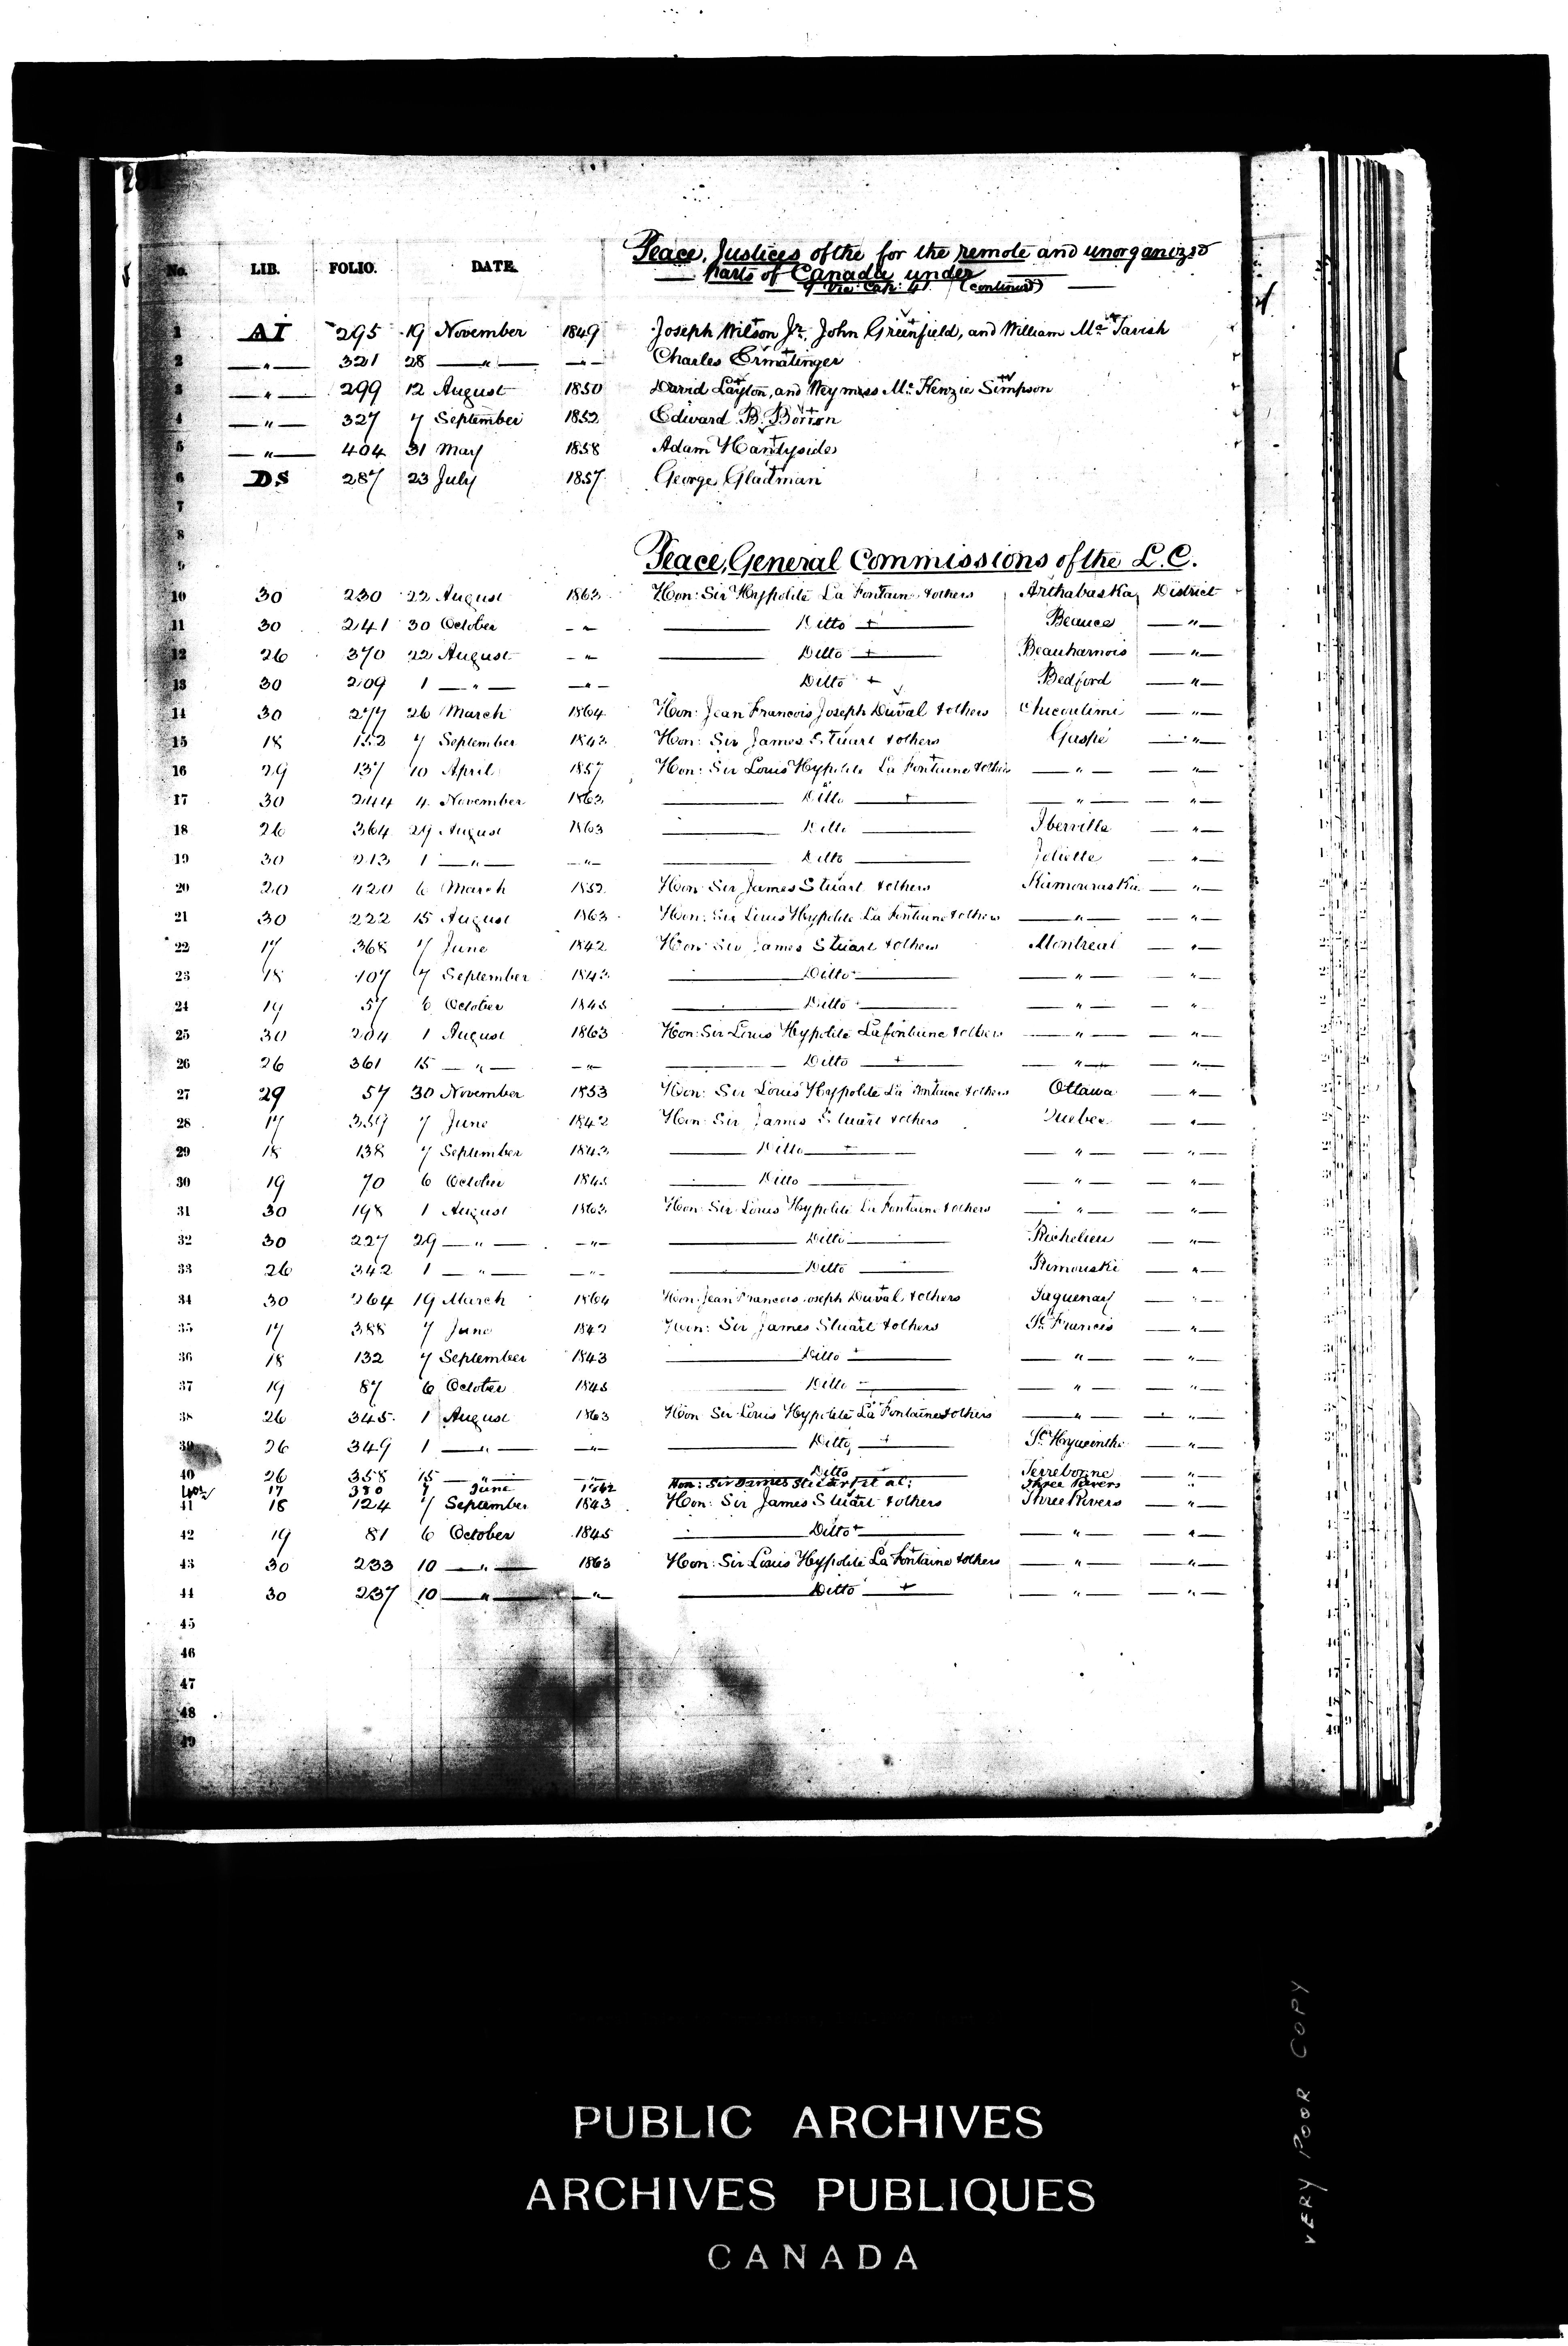 No. LIB. FOLIO. DATE
Peace, Justices of the for the remote and unorganized
parts of Canada under
(continued)
1 AI 295 19 November 1849 Joseph Wilson Jr. John Greenfield, and William Mc Tavish
2 — " — 321 28 — " — — " — Charles Ermatinger
3 — " — 299 12 August 1850 David Layton, and Weymiss Mc Kenzie Simpson
4 — " — 327 7 September 1852 Edward B. Borron
5 — " — 404 31 May 1858 Adam Handysides
6 DS 287 23 July 1857 George Gladman
7
8
9 Peace, General Commissions of the L.C.
10 30 230 22 August 1863 Hon: Sir Hypolite La Fontaine & others Arthabaska District
11 30 241 30 October — " Ditto + Beauce — " —
12 26 370 22 August — " Ditto + Beauharnois — " —
13 30 209 1 — " — — " — Ditto + Bedford — " —
14 30 277 26 March 1864 Hon: Jean Francois Joseph Duval & others Chicoutimi — " —
15 18 153 7 September 1843 Hon: Sir James Stuart & others Gaspé — " —
16 29 137 10 April 1857 Hon: Sir Louis Hypolite La Fontaine & others — " — — " —
17 30 244 4 November 1863 Ditto + — " — — " —
18 26 364 29 August 1863 Ditto Iberville — " —
19 30 213 1 — " — — " — Ditto Joliette — " —
20 20 420 6 March 1852 Hon: Sir James Stuart & others Kamouraska — " —
21 30 222 15 August 1863 Hon: Sir Louis Hypolite La Fontaine & others — " — — " —
22 17 368 7 June 1842 Hon: Sir James Stuart & others Montreal — " —
23 18 107 7 September 1843 Ditto — " — — " —
24 19 57 6 October 1845 Ditto — " — — " —
25 30 204 1 August 1863 Hon: Sir Louis Hypolite Lafontaine & others — " — — " —
26 26 361 15 — " — — " — Ditto + — " — — " —
27 29 57 30 November 1853 Hon: Sir Louis Hypolite La Fontaine & others Ottawa — " —
28 17 359 7 June 1842 Hon: Sir James Stuart & others Quebec — " —
29 18 138 7 September 1843 Ditto + — " — — " —
30 19 70 6 October 1845 Ditto + — " — — " —
31 30 198 1 August 1863 Hon: Sir Louis Hypolite La Fontaine & others — " — — " —
32 30 227 29 — " — — " — Ditto Richelieu — " —
33 26 342 1 — " — — " — Ditto Rimouski — " —
34 30 264 19 March 1864 Hon: Jean Francois Joseph Duval & others Saguenay — " —
35 17 388 7 June 1842 Hon: Sir James Stuart & others St. Francis — " —
36 18 132 7 September 1843 Ditto + — " — — " —
37 19 87 6 October 1845 Ditto — " — — " —
38 26 345 1 August 1863 Hon Sir Louis Hypolite La Fontaine & others — " — — " —
39 26 349 1 — " — — " — Ditto + St. Hyacinthe — " —
40 26 358 15 — " — — " — Ditto + Terrebonne — " —
40½ 17 380 7 June 1842 Hon: Sir James Stuart et al: Three Rivers "
41 18 124 7 September 1843 Hon: Sir James Stuart & others Three Rivers — " —
42 19 81 6 October 1845 Ditto + — " — — " —
43 30 233 10 — " — 1863 Hon: Sir Louis Hypolite La Fontaine & others — " — — " —
44 30 237 10 — " — — " — Ditto + — " — — " —
45
46
47
48
49
PUBLIC ARCHIVES
ARCHIVES PUBLIQUES
CANADA
VERY POOR COPY